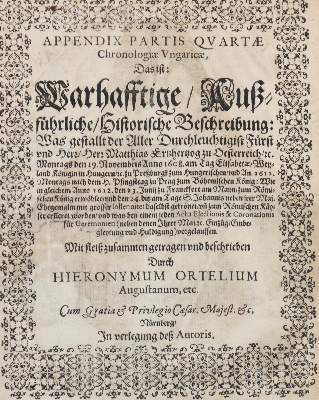 APPENDIX PARTIS QVARTÆ
Chronologiæ Vngaricæ,
Das ist:
Warhafftige/ Auß-
führliche/ Historische Beschreibung:
Was gestallt der Aller Durchleuchtigist Fürst
vnd Herr/ Herr Matthias Ertzhertzog zu Oesterreich/ ꝛc.
Montags den 19. Novembris Anno 1608. am Tag Elisabetæ/ Wey-
land Königin in Hungern/ ꝛc. zu Preßburg zum Hungerischen/ vnd An. 1611.
Montags nach dem H. Pfingstag zu Prag zum Böhmischen König: Wie
ingleichem Anno 1612. den 13. Junij zu Franckfort am Mayn/ zum Römi-
schen König erwöhlet/ vnd den 24. diß am Tage S. Johannis neben der May.
Ehegemalin mit grosser Solennitet daselbst gekrönet/ vnd zum Römischen Käy-
ser erkleret worden/ vnd was bey einem jeden Actu Electionis & Coronationis
für Ceremonien (neben deren Ihrer Maje. Einzüg/ Einbe-
gleitung vnd Huldigung) vorgelauffen.
Mit fleiß zusammen getragen vnd beschrieben
Durch
HIERONYMUM ORTELIUM
Augustanum, etc.
Cum Gratia & Privilegio Cæsar. Majest. &c.
Nürnberg/
In verlegung deß Autoris.